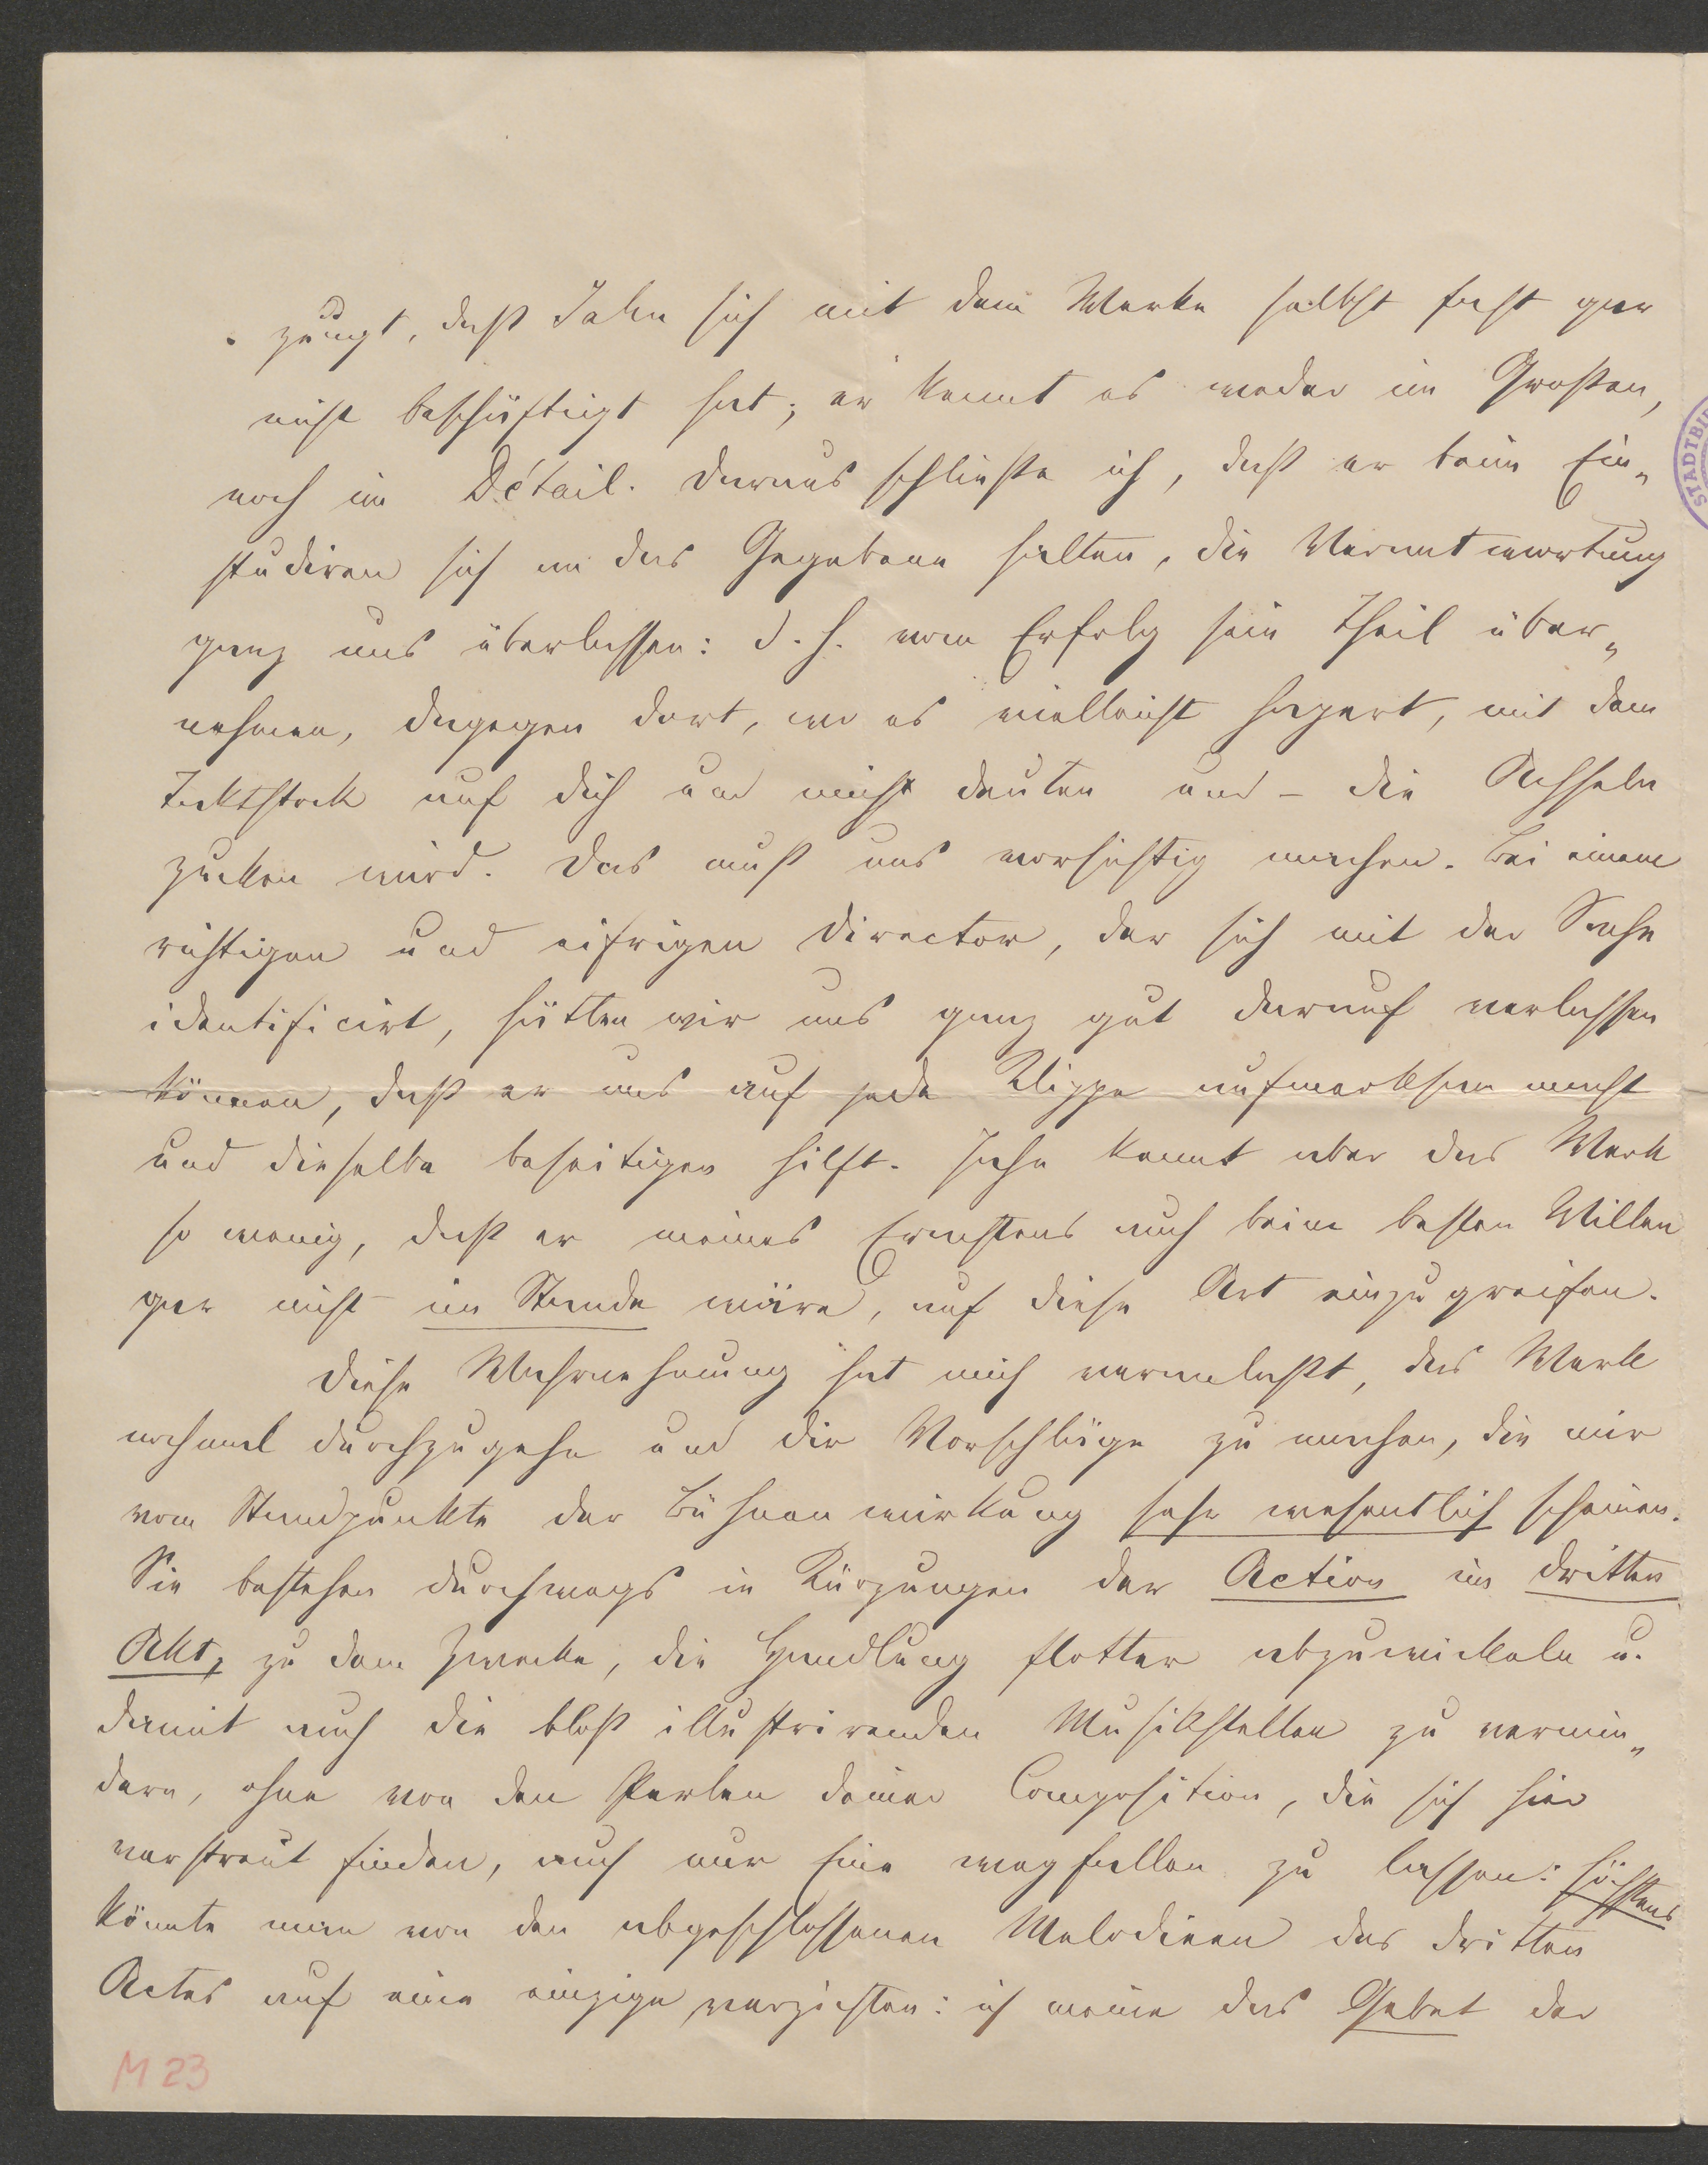 zeugt, daß Jahn sich mit dem Werke selbst fast gar
nicht beschäftigt hat; er kennt es weder im Großen,
noch im Détail. Daraus schließe ich, daß er beim Ein„
studiren sich an das Gegebene halten, die Verantwortung
ganz uns überlassen: d. h. vom Erfolg sein Theil über„
nehmen, dagegen dort, wo es vielleicht hapert, mit dem
Taktstock auf dich und mich deuten und – die Achseln
zucken wird. Das muß uns vorsichtig machen. Bei einem
richtigen und eifrigen Director, der sich mit der Sache
identificirt, hätten wir uns ganz gut darauf verlassen
können, daß er uns auf jede Klippe aufmerksam macht
und dieselbe beseitigen hilft. Jahn kennt aber das Werk
so wenig, daß er meines Erachtens auch beim besten Willen
gar nicht im Stande wäre, auf diese Art einzugreifen.
Diese Wahrnehmung hat mich veranlaßt, das Werk
nochmal durchzugehn und dir Vorschläge zu machen, die mir
vom Standpunkte der Bühnenwirkung sehr wesentlich scheinen.
Sie bestehen durchwegs in Kürzungen der Action im dritten
Akt, zu dem Zwecke, die Handlung flotter abzuwickeln u.
damit auch die bloß illustrirenden Musikstellen zu vermin„
dern, ohne von den Perlen deiner Composition, die sich hier
verstreut finden, auch nur Eine wegfallen zu lassen: höchstens
könnte man von den abgeschlossenen Melodieen des dritten
Actes auf eine einzige verzichten: ich meine das Gebet der
M 23
STADTBI